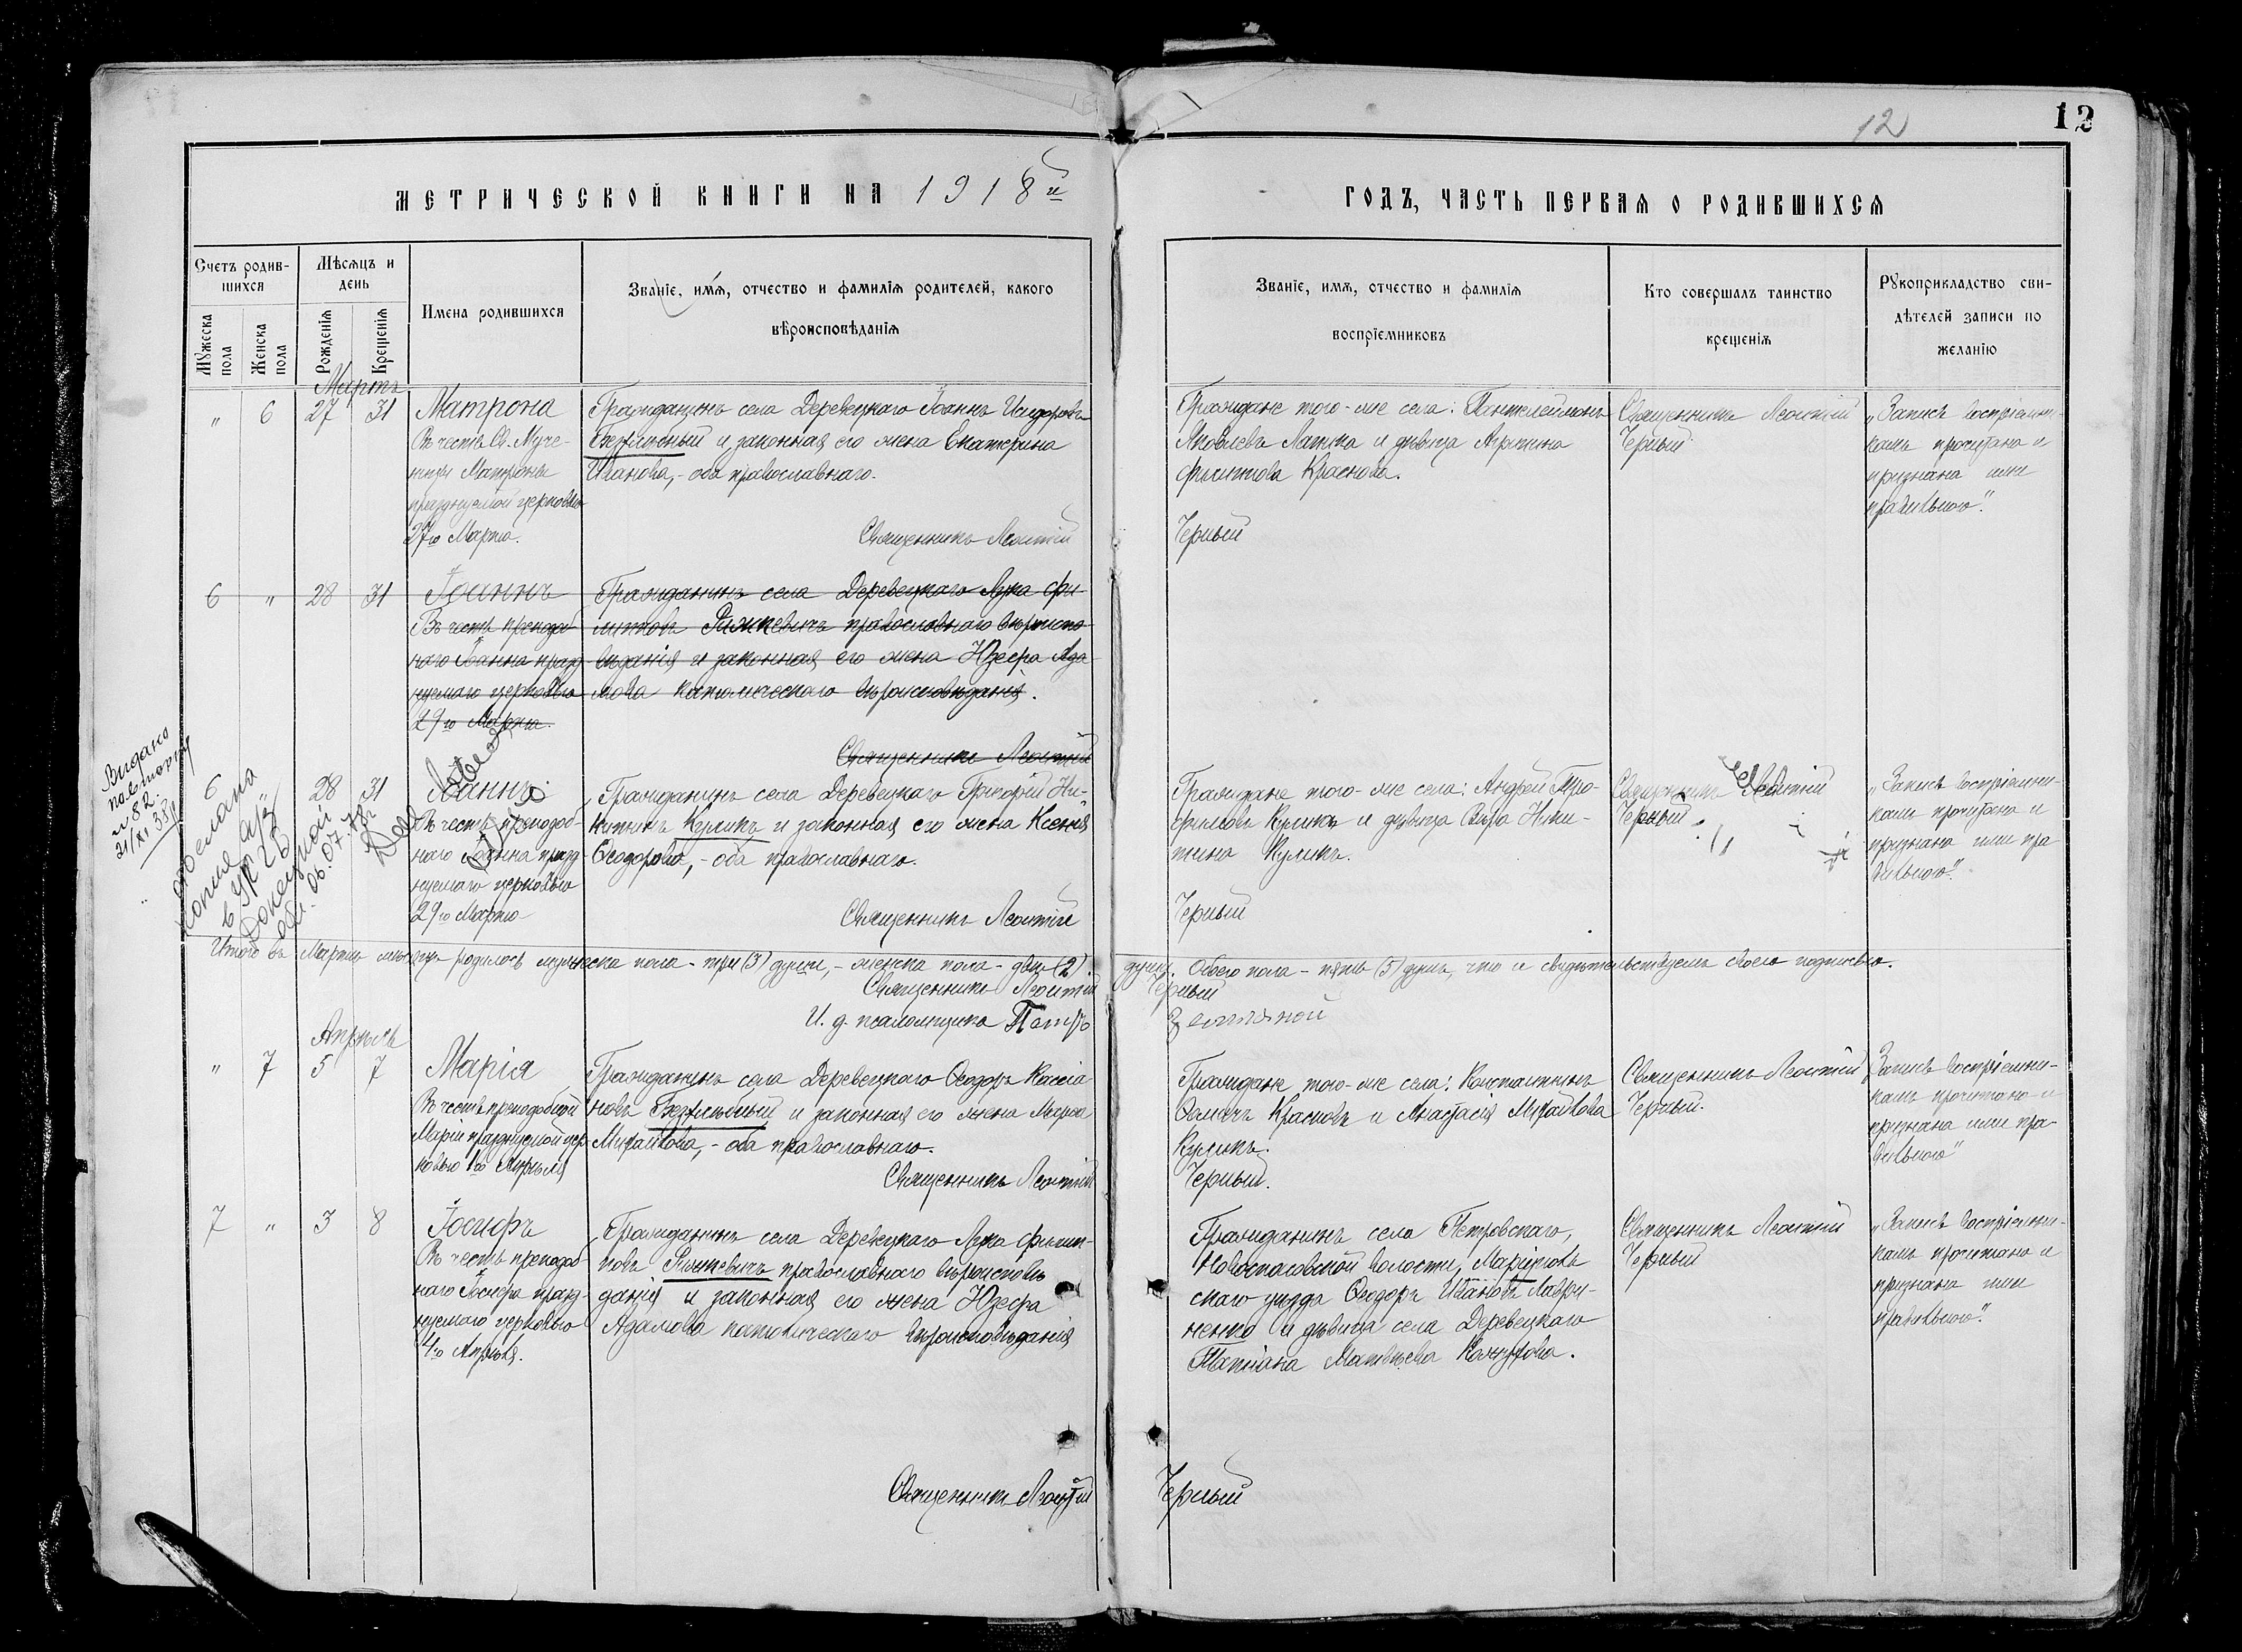 12
12
МЕТРИЧЕСКОЙ КНИГИ НА 1918й
ГОДЪ, ЧАСТЬ ПЕРВАЯ О РОДИВШИХСЯ
Счетъ родив-
шихся
Мѣсяцъ и
день
Имена родившихся
Званіе, имя, отчество и фамилія родителей, какого
вѣроисповѣданія
Мужеска
пола
Женска
пола
Рожденія
Крещенія
Званіе, имя, отчество и фамилія
воспріемниковъ
Кто совершалъ таинство
крещенія
Рукоприкладство сви-
дѣтелей записи по
желанію
Мартъ
" 6 27 31 Матрона
Въ честь Св. Муче-
ницы Матроны
празднуемой церковью
27го Марта.
Гражданинъ села Деревецкаго Іоаннъ Исидоровъ
и законная его жена Екатерина
Иванова, - оба православнаго.
Священникъ Леонтій
Граждане того-же села: Пантелеймонъ
Яковлевъ и дѣвица
Филиппова Краснова.
Черный
Священникъ Леонтій
Черный
"Запись воспріемни-
камъ прочитана и
признана ими
правильною".
6 " 28 31 Іоаннъ
Въ честь преподоб-
наго Іоанна празд-
нуемаго церковью
29го Марта.
Гражданинъ села Деревецкаго Лука Фи-
липповъ Рижкевичъ православнаго вѣроиспо-
вѣданія и законная его жена Юзефа Ада-
мова католическаго вѣроисповѣданія.
Священникъ Леонтій
Выдано
повторну
№82.
21/XI 38р
отослана
копия а/з
в
Донецкой
обл.
06.07.78г
6 " 28 31 Іоаннъ
Въ честь преподоб-
наго Іоанна празд-
нуемаго церковью
29го Марта
Гражданинъ села Деревецкаго Григорій Ни-
китинъ Куликъ и законная его жена Ксенія
Ѳеодорова, - оба православнаго.
Священникъ Леонтій
Граждане того-же села: Андрей Тро-
фимовъ Куликъ и дѣвица Вѣра Ники-
тина Куликъ.
Черный
Священникъ Леонтій
Черный
"Запись воспріемни-
камъ прочитана и
признана ими пра-
вильною".
Итого въ Мартѣ мѣсяцѣ родилось мужеска пола - три (3) души, - женска пола - двѣ (2) души. Обоего пола - пять (5) душъ, что и свидѣтельствуемъ своею подписью.
Священникъ Леонтій Черный
И. д. псаломщика
Апрѣль
" 7 5 7 Марія
Въ честь преподобной
Маріи празднуемой цер-
ковью 1го Апрѣля
Гражданинъ села Деревецкаго Ѳеодоръ Кассіа-
новъ и законная его жена Марѳа
Михайлова, - оба православнаго.
Священникъ Леонтій
Граждане того-же села: Константинъ
Ѳоминъ Красновъ и Анастасія Михайлова
Куликъ.
Черный.
Священникъ Леонтій
Черный.
Запись воспріемни-
камъ прочитана и
признана ими пра-
вильною"
7 " 3 8 Іосифъ
Въ честь преподоб-
наго Іосифа празд-
нуемаго церковью
4го Апрѣля.
Гражданинъ села Деревецкаго Лука Филип-
повъ Рижкевичъ православнаго вѣроисповѣ-
данія и законная его жена Юзефа
Адамова католическаго вѣроисповѣданія
Священникъ Леонтій
Гражданинъ села Петровскаго,
Новоспасовской волости, Маріуполь-
скаго уѣзда Ѳеодоръ Ивановъ Лаври-
ненко и дѣвица села Деревецкаго
Татіана Матвѣева
Черный
Священникъ Леонтій
Черный
"Запись воспріемни-
камъ прочитана и
признана ими
правильною".